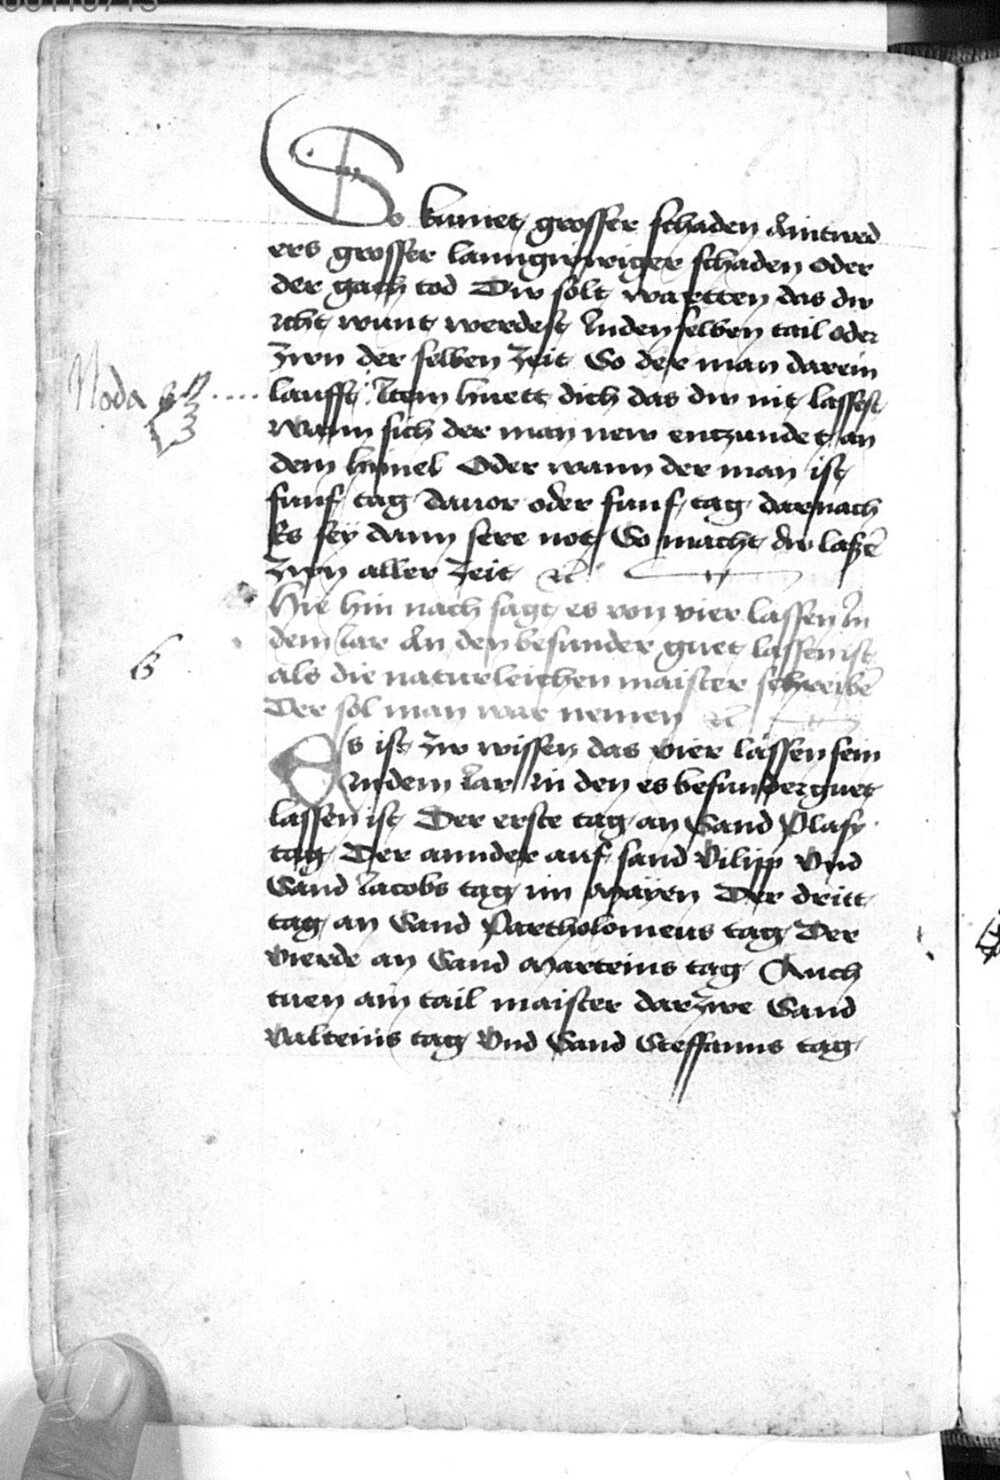 So kumet grosser schaden Aintwed
ers grosser lanngwiriger schaden oder
der gach tod Dw solt wartten das dw
icht wunt werdest Inden selben tail oder
zwn der selben zeit So der man darein
Noda
laufft Item huett dich das dw nit lassest
Wann sich der man new entzundet an
dem himel Oder wann der man ist
funf tag dauor oder funf tag darnach
Es sey dann sere not So macht dw laßē
zwn aller zeit rc
Hie hin nach sagt es von vier lassen In
dem Iar An den besunder guet lassen ist
6
als die naturleichen maister schreibē
Der sol man war nemen rc
Es ist zw wissen das vier lassen sein
Indem Iar In den es besunder guet
lassen ist Der erste tag an Sand Plasy
tag Der annder auf sand Vilipp Vnd
Sand Iacobs tag im Mayen Der dritt
tag an Sand Partholomeus tag Der
vierde an Sand Marteins tag Auch
tuen ain tail maister darzwe Sand
Valteins tag Vnd Sand Steffanns tag